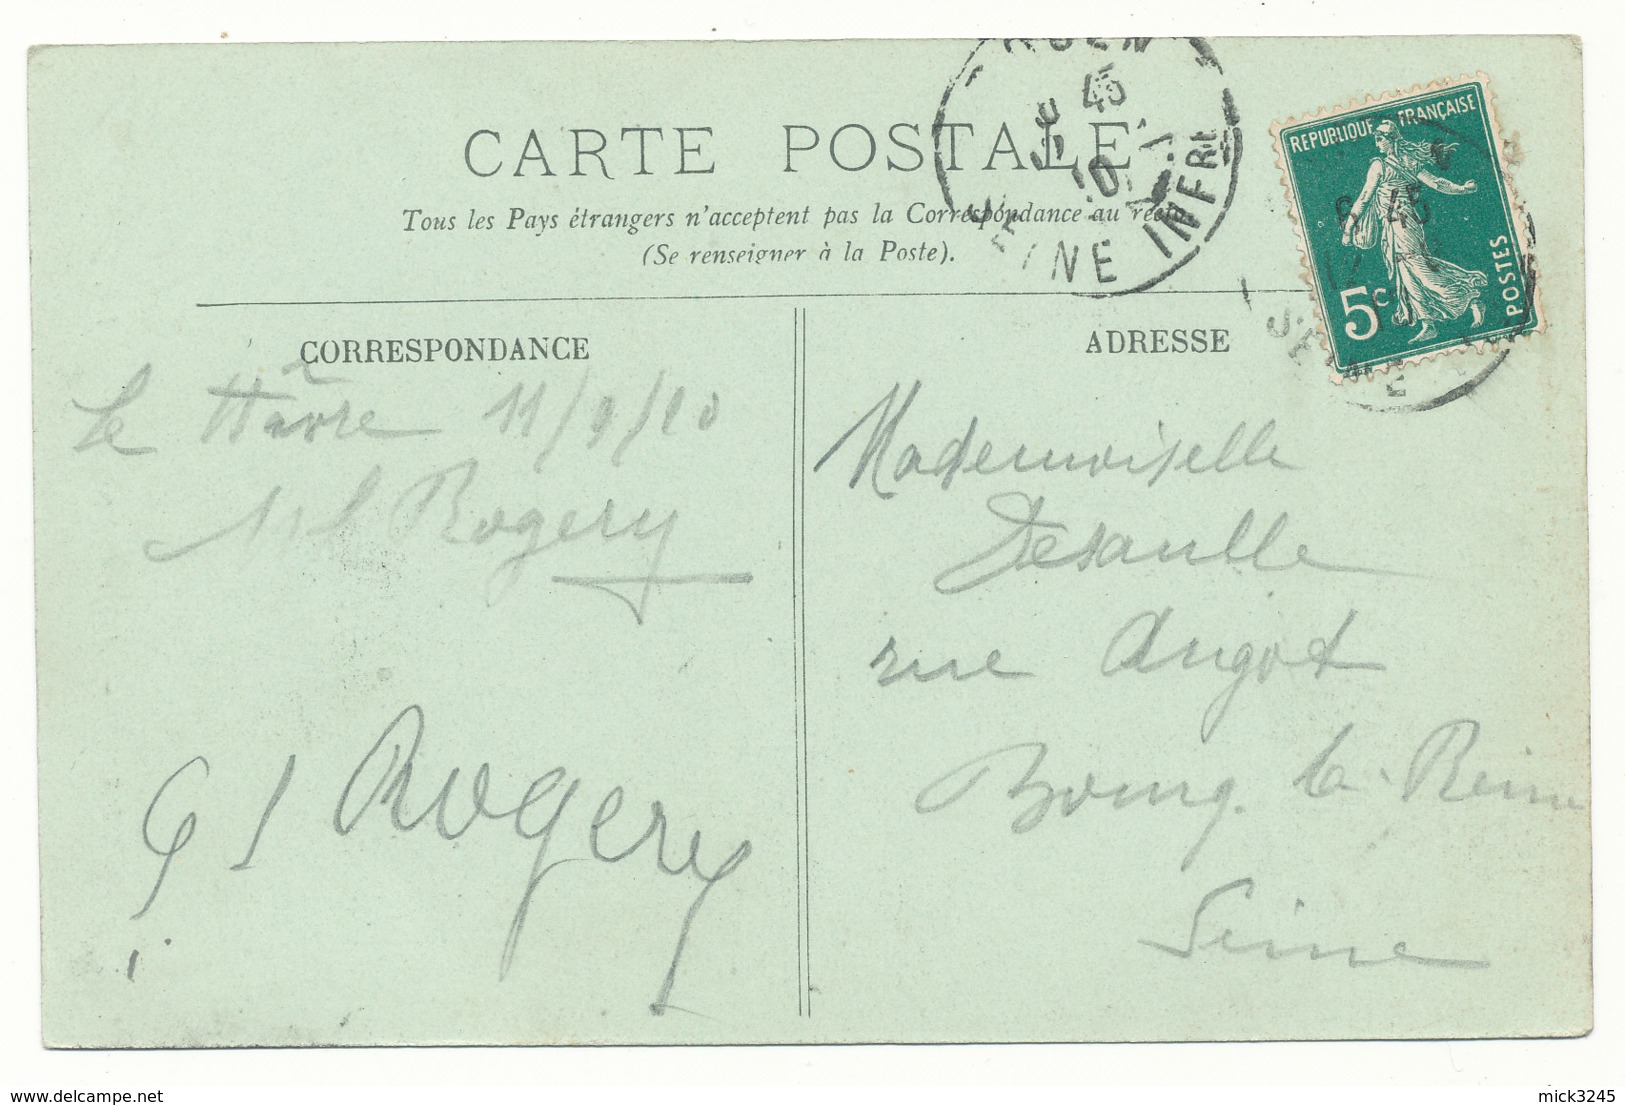 CARTE POSTALE
Tous les Pays étrangers n'acceptent pas la Correspondance au recto
(Se renseigner à la Poste).
ROUEN
45
10
SEINE INFRE
REPUBLIQUE FRANÇAISE
6 45
5c
POSTES
SEINE
CORRESPONDANCE
ADRESSE
Le Hâvre 11/9/10
Rogery
Rogery
Mademoiselle
Desaulle
rue Angot
Bourg-la-Reine
Seine
delcampe.net
mick3245